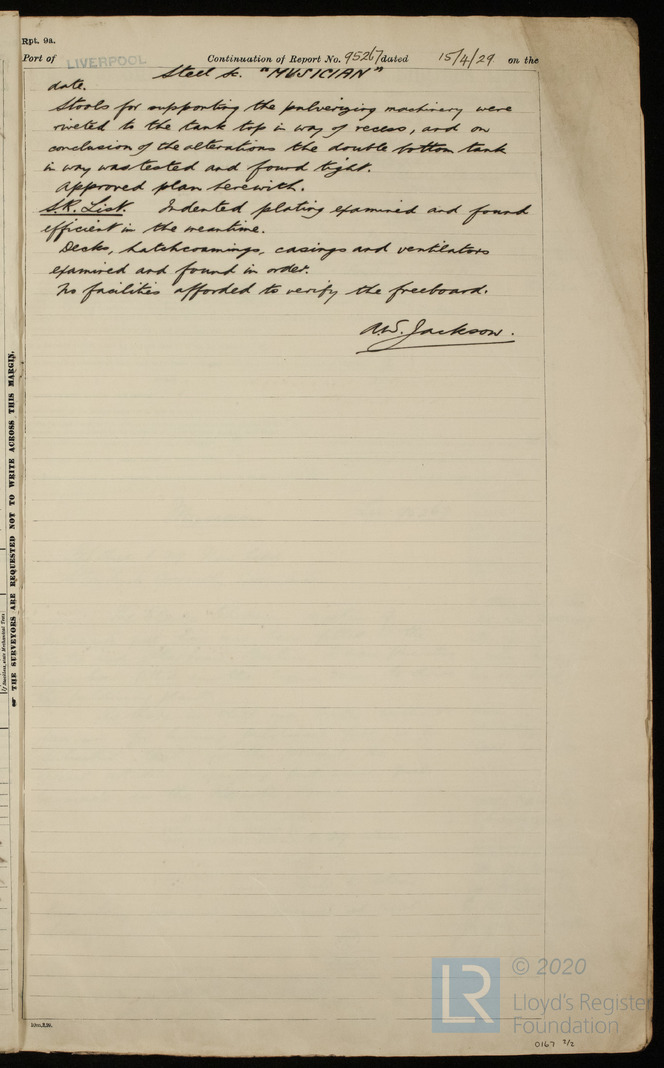 Rpt. 9a.
Port of LIVERPOOL Continuation of Report No. 95267 dated 15/4/29 on the
Steel Sc. "MUSICIAN"
date.
Stools for supporting the pulverizing machinery were
riveted to the tank top in way of recess, and on
conclusion of the alterations the double bottom tank
in way was tested and found tight.
Approved plan herewith.
S.R. List. Indented plating examined and found
efficient in the meantime.
Decks, hatchcoamings, casings and ventilators
examined and found in order.
No facilities afforded to verify the freeboard.
A.W. Jackson.
THE SURVEYORS ARE REQUESTED NOT TO WRITE ACROSS THIS MARGIN.
LR
© 2020
Lloyd's Register
Foundation
0167 2/2